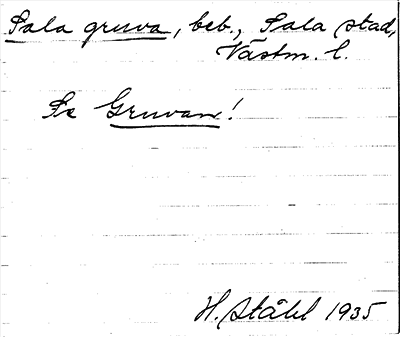 Sala gruva, beb., Sala stad,
Västm. l.
Se Gruvan!
H. Ståhl 1935